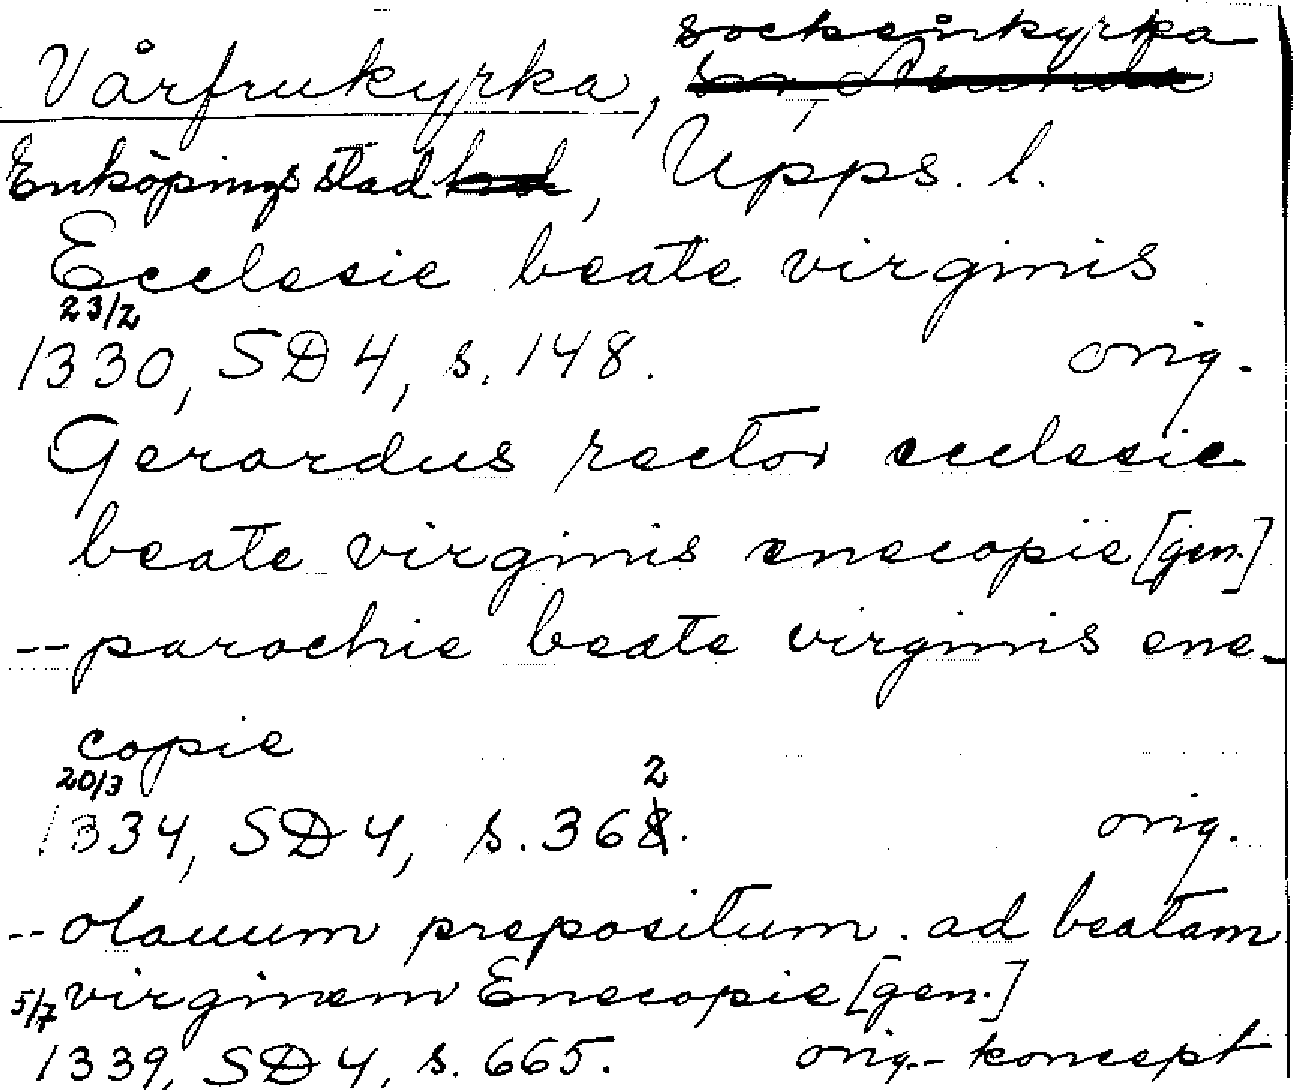 sockenkyrka
Vårfrukyrka,
Enköpings stad, Upps. l.
Ecclesie beate virginis
23/2
1330, SD 4, s. 148. orig.
Gerardus rector ecclesie
beate virginis enecopie [gen.]
-- parochie beate virginis ene-
copie
20/3 2
1334, SD 4, s. 368. orig.
-- olauum prepositum . ad beatam
virginem Enecopie [gen.]
5/7
1339, SD 4, s. 665. orig.-koncept